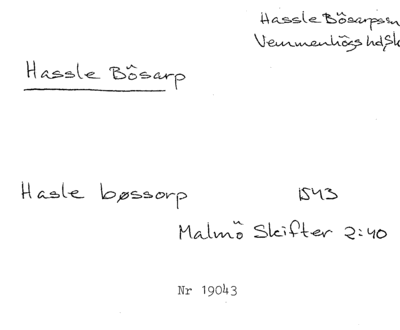 Hassle Bösarpssn
Vemmenhögs hd, Sk
Hassle Bösarp
Hasle bøssorp 1543
Malmö Skifter 2:40
Nr 19043